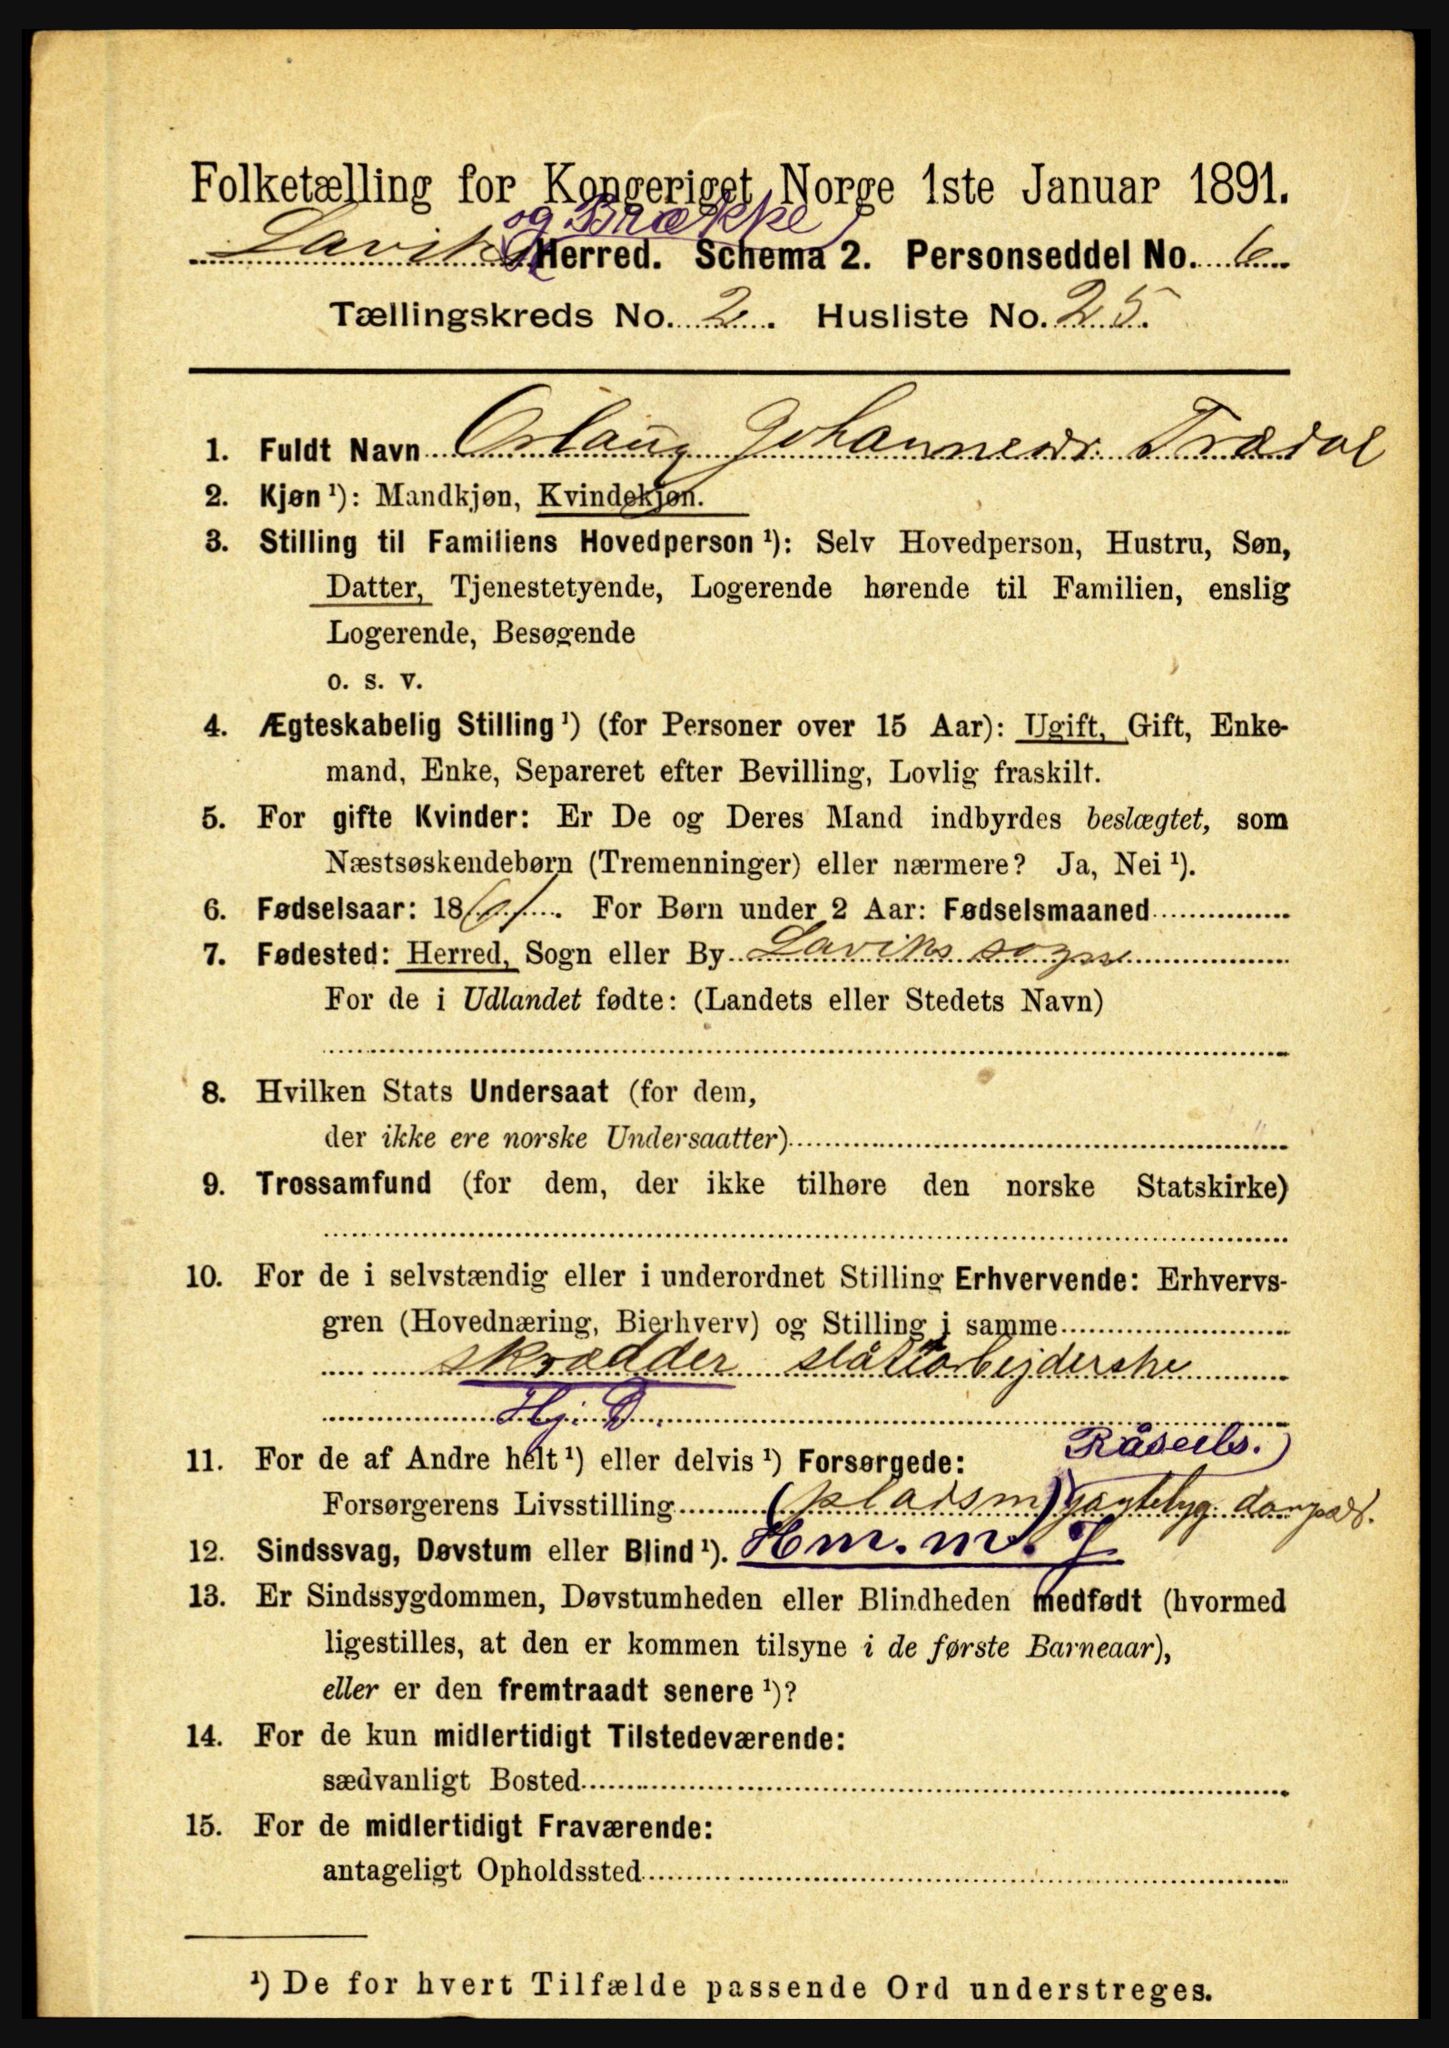 Folketælling for Kongeriget Norge 1ste Januar 1891.
og Brække
Laviks Herred. Schema 2. Personseddel No. 6
Tællingskreds No. 2. Husliste No. 25.
1. Fuldt Navn Oslaug Johannesdr. Trædal
2. Kjøn ¹): Mandkjøn, Kvindekjøn.
3. Stilling til Familiens Hovedperson ¹): Selv Hovedperson, Hustru, Søn,
Datter, Tjenestetyende, Logerende hørende til Familien, enslig
Logerende, Besøgende
o. s. v.
4. Ægteskabelig Stilling ¹) (for Personer over 15 Aar): Ugift, Gift, Enke-
mand, Enke, Separeret efter Bevilling, Lovlig fraskilt.
5. For gifte Kvinder: Er De og Deres Mand indbyrdes beslægtet, som
Næstsøskendebørn (Tremenninger) eller nærmere? Ja, Nei ¹).
6. Fødselsaar: 1861. For Børn under 2 Aar: Fødselsmaaned
7. Fødested: Herred, Sogn eller By Laviks sogn
For de i Udlandet fødte: (Landets eller Stedets Navn)
8. Hvilken Stats Undersaat (for dem,
der ikke ere norske Undersaatter)
9. Trossamfund (for dem, der ikke tilhøre den norske Statskirke)
10. For de i selvstændig eller i underordnet Stilling Erhvervende: Erhvervs-
gren (Hovednæring, Bierhverv) og Stilling i samme
skrædder slåttarbejderske
Hj. D.
11. For de af Andre helt ¹) eller delvis ¹) Forsørgede: Råseilb.)
Forsørgerens Livsstilling (pladsm) jagtebyg.
12. Sindssvag, Døvstum eller Blind ¹). Hm. m. J.
13. Er Sindssygdommen, Døvstumheden eller Blindheden medfødt (hvormed
ligestilles, at den er kommen tilsyne i de første Barneaar),
eller er den fremtraadt senere ¹)?
14. For de kun midlertidigt Tilstedeværende:
sædvanligt Bosted
15. For de midlertidigt Fraværende:
antageligt Opholdssted
¹) De for hvert Tilfælde passende Ord understreges.